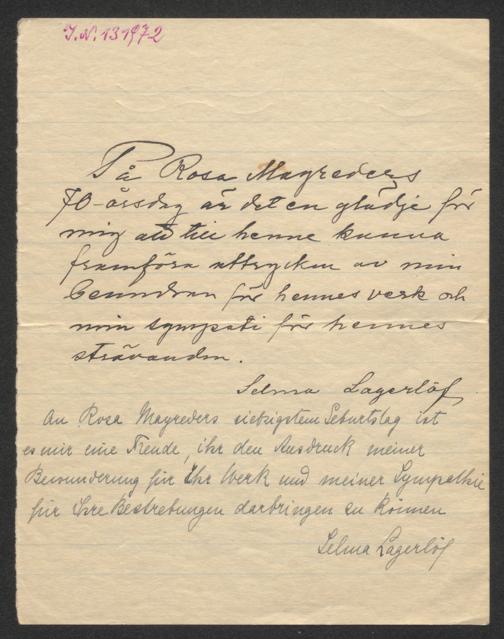 I.N. 131972
På Rosa Mayreders
70-årsdag är det en glädje för
mig att till henne kunna
framföra uttrycken av min
beundran för hennes verk och
min sympati för hennes
strävanden.
Selma Lagerlöf.
An Rosa Mayreders siebzigstem Geburtstag ist
es mir eine Freude, ihr den Ausdruck meiner
Bewunderung für Ihr Werk und meiner Sympathie
für ihre Bestrebungen darbringen zu können
Selma Lagerlöf